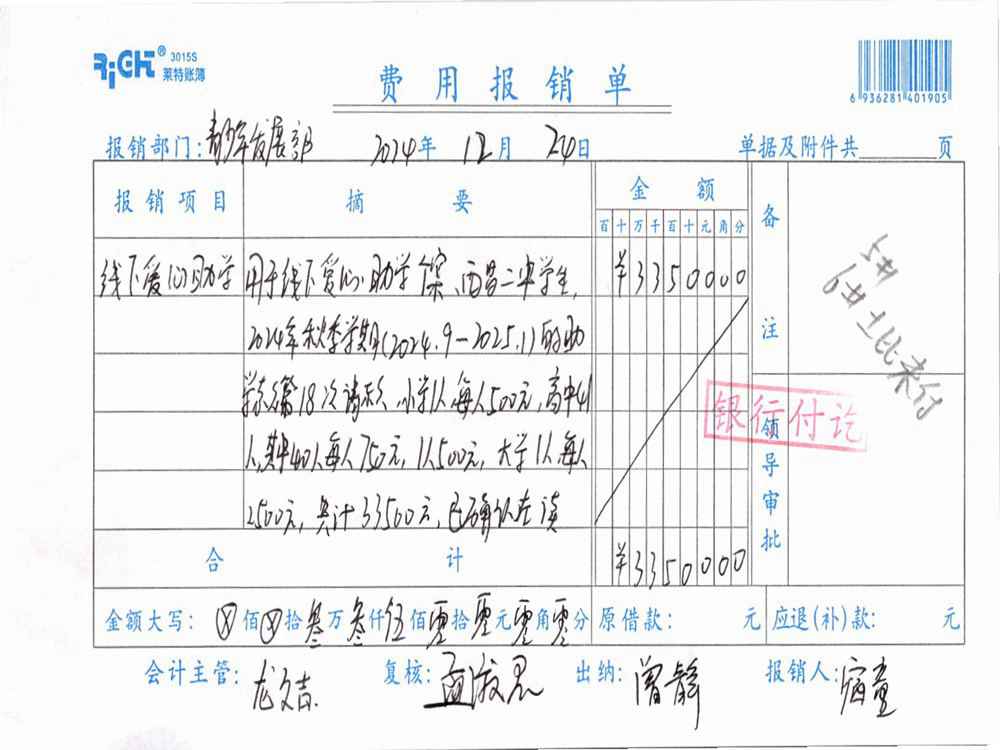 RiGHT® 3015S
莱特账簿
费用报销单
6 936281 401905
报销部门:青少年发展部 2024年 12月 24日 单据及附件共 页
报销项目 摘要 金额 备注
百十万千百十元角分
线下爱心助学 用于线下爱心助学个案、西昌二中学生, ¥3350000
2024年秋季学期(2024.9-2025.1)的助
学款第18次请款,小学1人,每人500元,高中41
人,其中40人每人750元,1人500元,大学1人,每人
2500元,共计33500元,已确认在读
5#
6#
未付
银行付讫
领导审批
合计 ¥3350000
金额大写:ⓧ佰ⓧ拾叁万叁仟伍佰零拾零元零角零分 原借款: 元 应退(补)款: 元
会计主管:龙文吉 复核:孟淑君 出纳:曾静 报销人:宿童